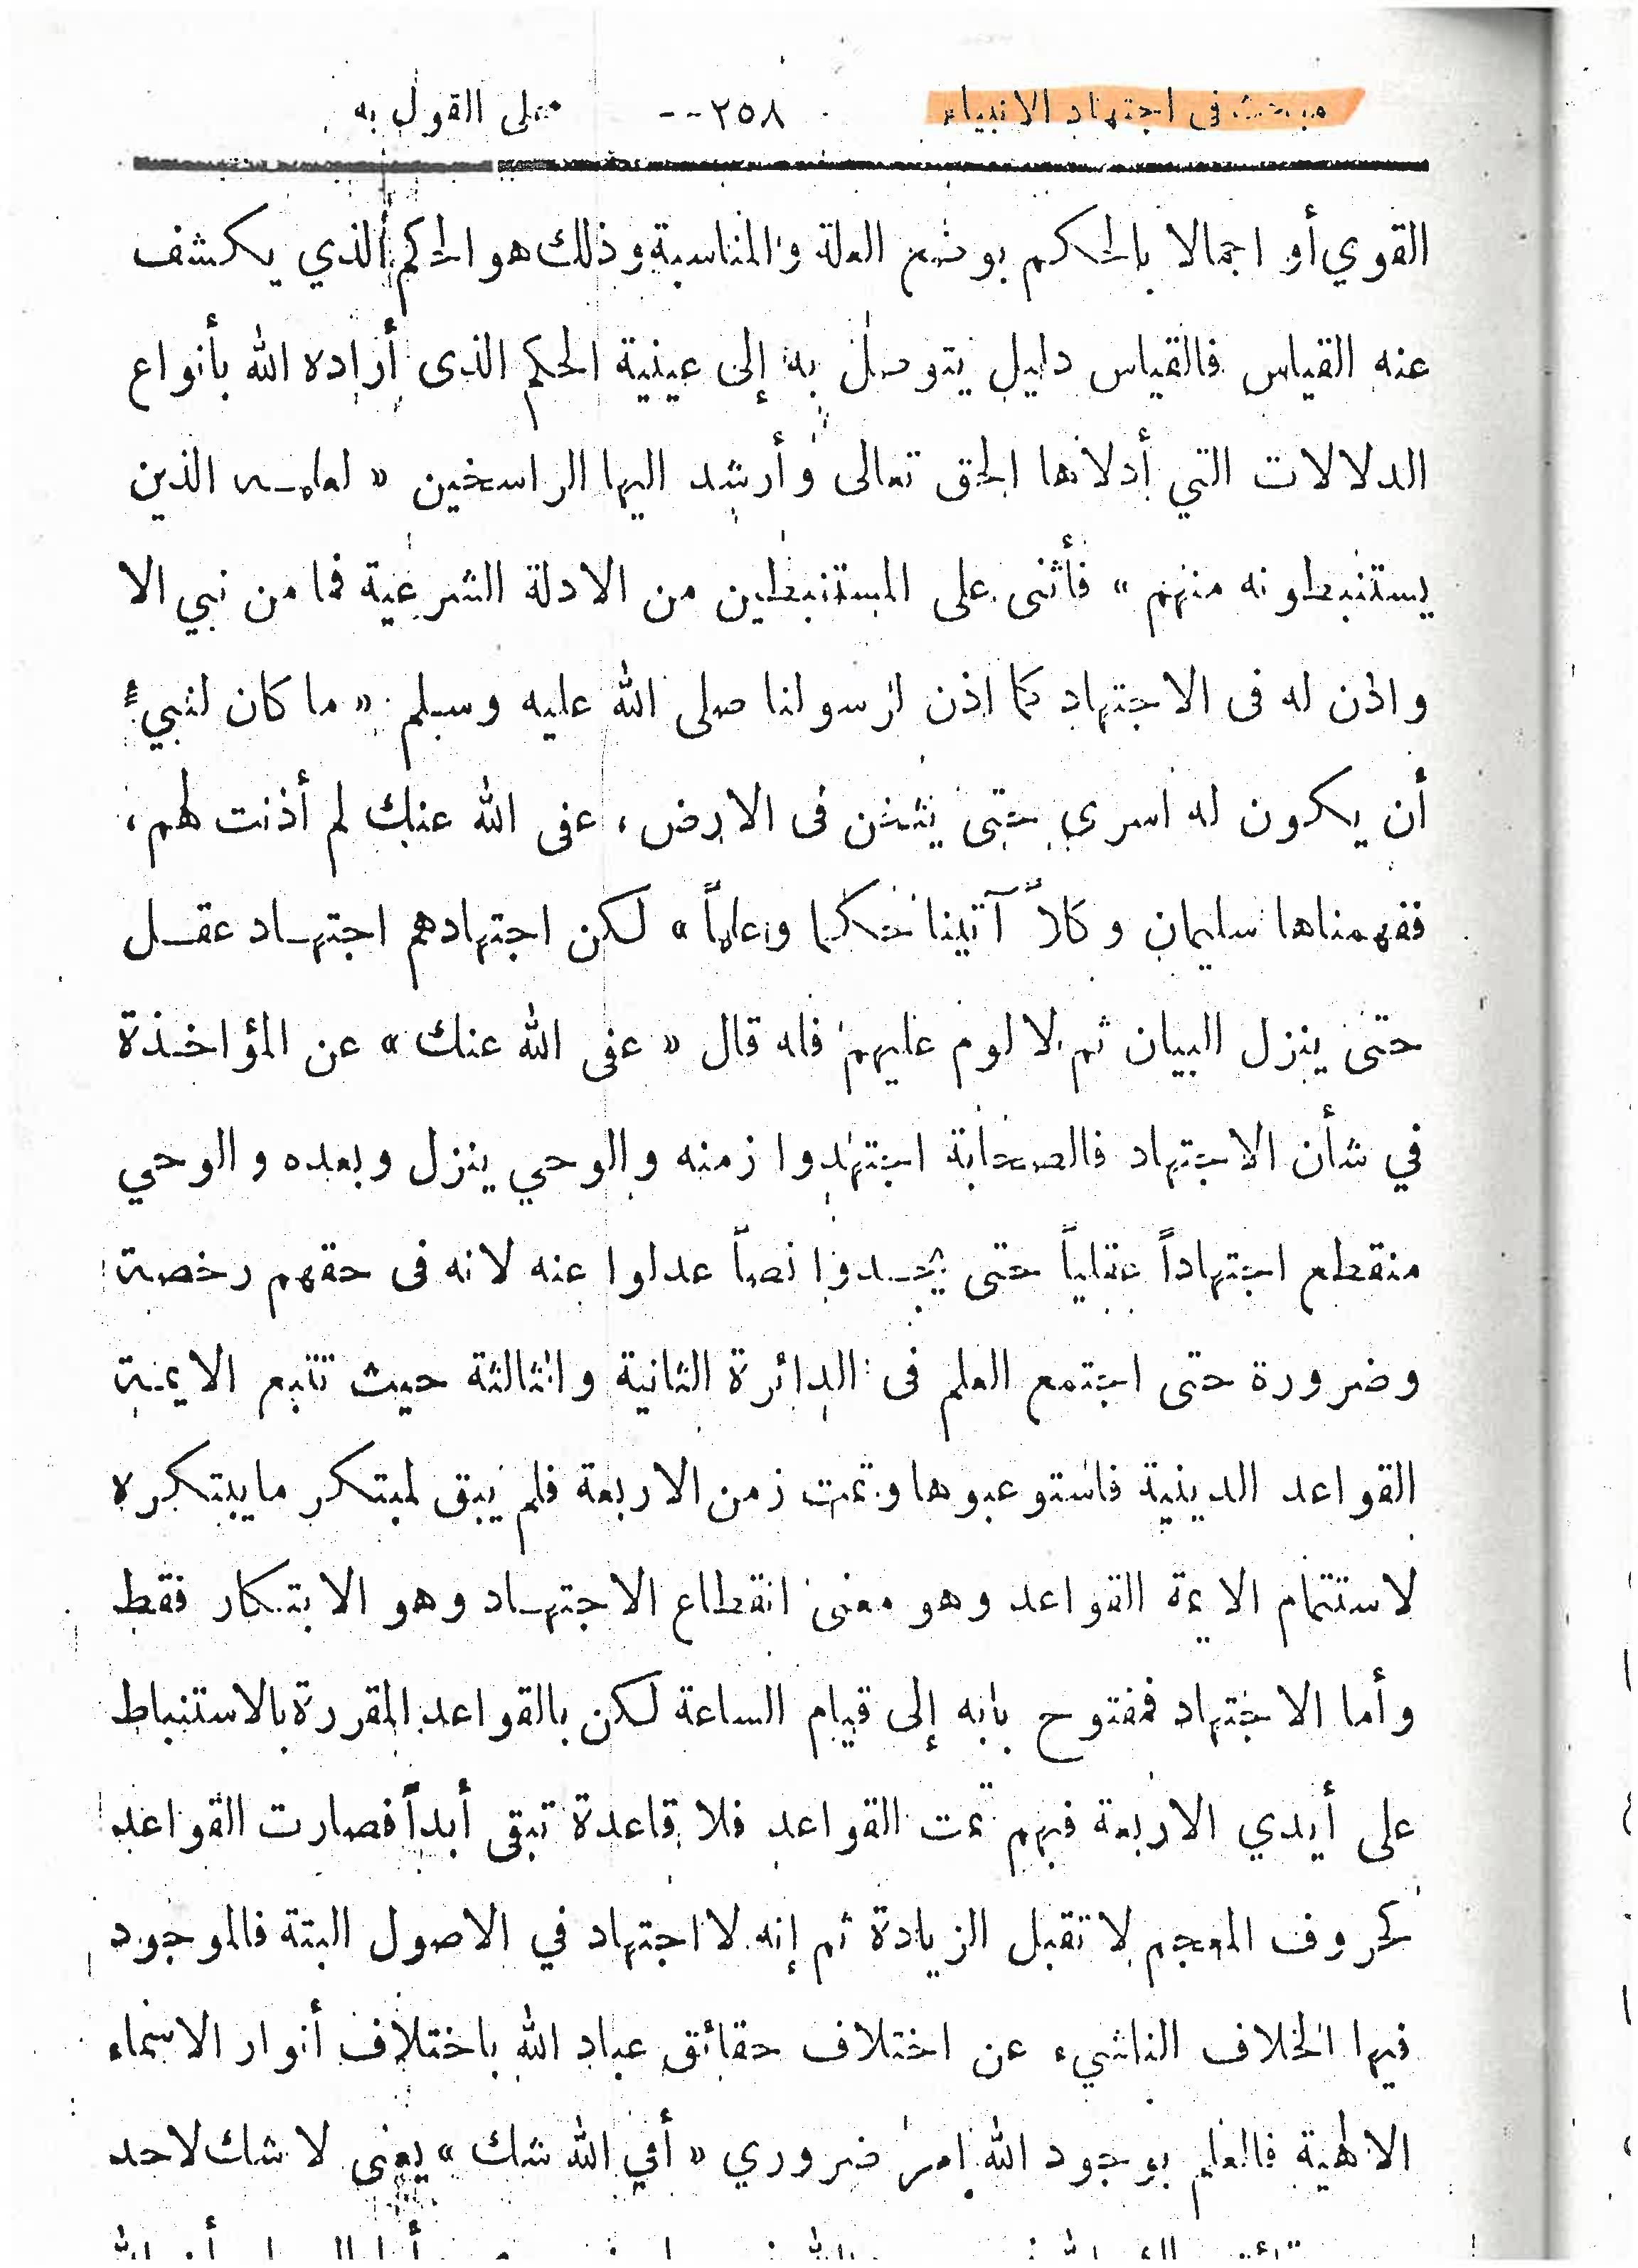 مبحث فى اجتهاد الانبياء --٢٥٨-- على القول به
القوي أو اجمالا بالحكم بوضع العلة والمناسبة وذلك هو الحكم الذي يكشف
عنه القياس فالقياس دليل يتوصل به إلى عينية الحكم الذى أراده الله بأنواع
الدلالات التي أدلاها الحق تعالى وأرشد اليها الراسخين « لعلمـه الذين
يستنبطونه منهم » فأثنى على المستنبطين من الادلة الشرعية فما من نبي الا
واذن له فى الاجتهاد كما اذن لرسولنا صلى الله عليه وسلم « ما كان لنبيء
أن يكون له اسرى حتى يثخن فى الارض ، عفى الله عنك لم أذنت لهم ،
ففهمناها سليمان وكلاًّ آتينا حكما وعلماً » لكن اجتهادهم اجتهـاد عقـل
حتى ينزل البيان ثم لا لوم عليهم فله قال « عفى الله عنك » عن المؤاخـذة
في شأن الاجتهاد فالصحابة اجتهدوا زمنه والوحي ينزل وبعده والوحي
منقطع اجتهاداً عقلياً حتى يجـدوا نصاً عدلوا عنه لانه فى حقهم رخصة
وضرورة حتى اجتمع العلم فى الدائرة الثانية والثالثة حيث تتبع الايمـة
القواعد الدينية فاستوعبوها وتمت زمن الاربعة فلم يبق لمبتكر ما يبتكره
لاستتمام الايمة القواعد وهو معنى انقطاع الاجتهـاد وهو الابتكار فقط
وأما الاجتهاد فمفتوح بابه إلى قيام الساعة لكن بالقواعد المقررة بالاستنباط
على أيدي الاربعة فبهم تمت القواعد فلا قاعدة تبقى أبداً فصارت القواعد
كحروف المعجم لا تقبل الزيادة ثم إنه لا اجتهاد في الاصول البتة فالموجود
فيها الخلاف الناشيء عن اختلاف حقائق عباد الله باختلاف أنوار الاسماء
الالهية فالعلم بوجود الله امر ضروري « أفي الله شك » يعنى لا شك لاحد